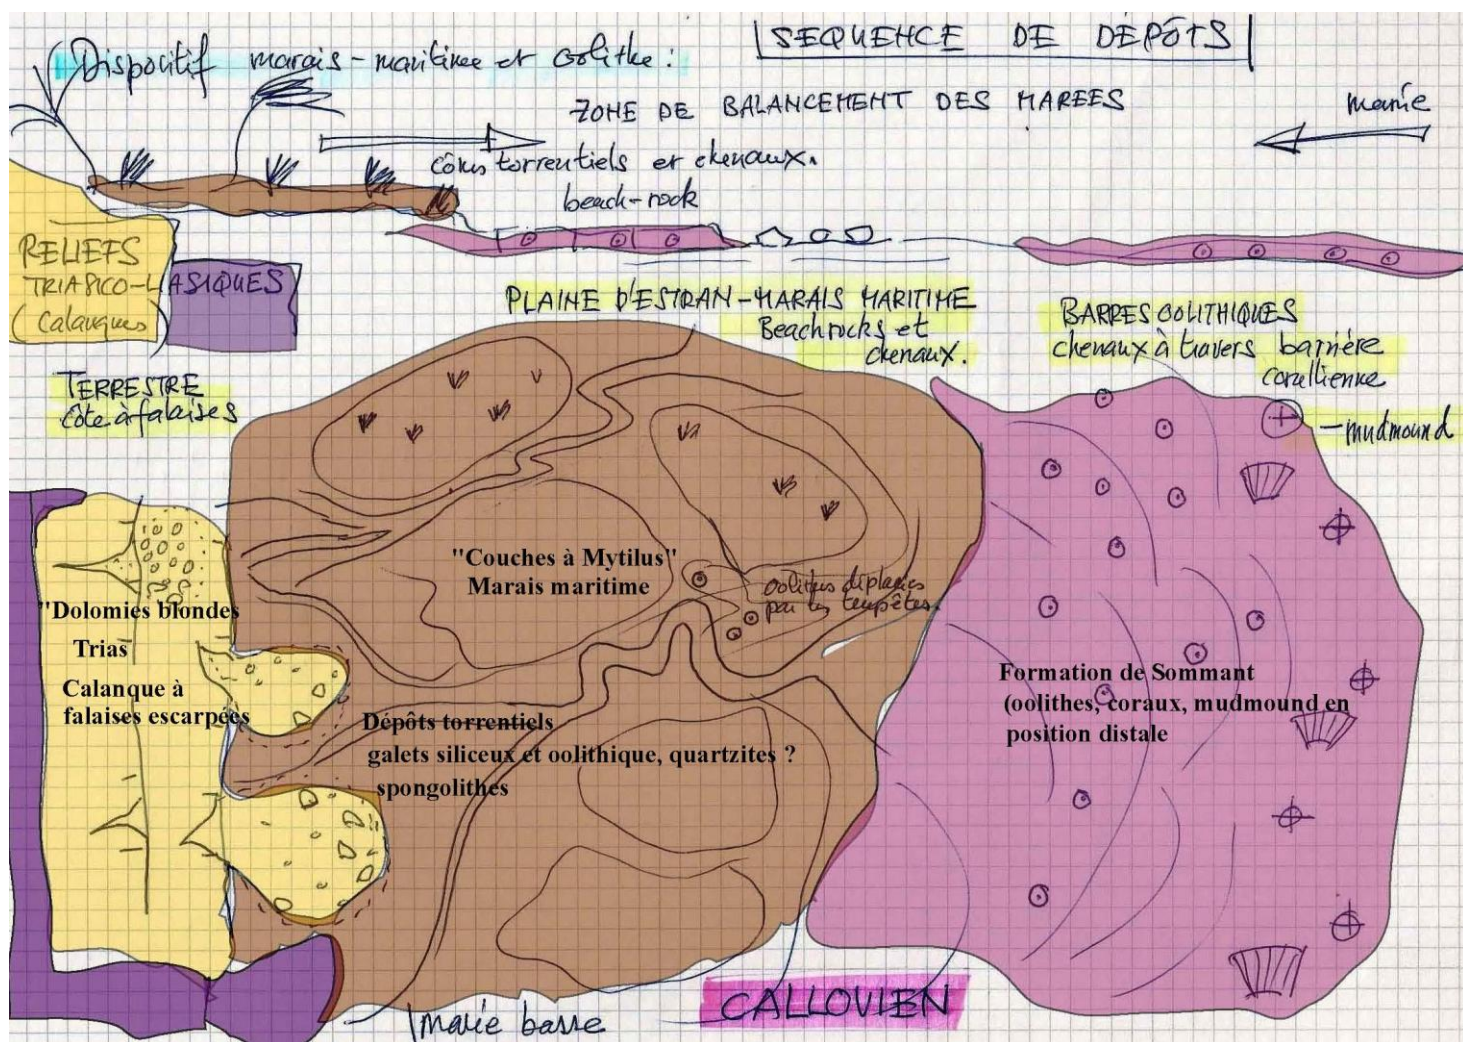 SEQUENCE DE DÉPÔTS
Dispositif marais-maritime et oolithe :
ZONE DE BALANCEMENT DES MAREES
marée
cônes torrentiels et chenaux.
beach-rock
RELIEFS
TRIASICO-LIASIQUES
(Calanques)
PLAINE D'ESTRAN-MARAIS MARITIME
Beachrocks et
chenaux.
BARRES OOLITHIQUES
chenaux à travers barrière
corallienne
TERRESTRE
côte à falaises
mudmound
"Couches à Mytilus"
Marais maritime
oolites déplacées
par les tempêtes.
"Dolomies blondes
Trias
Calanque à
falaises escarpées
Dépôts torrentiels
galets siliceux et oolithique, quartzites ?
spongolithes
Formation de Sommant
(oolithes, coraux, mudmound en
position distale
CALLOVIEN
marée basse